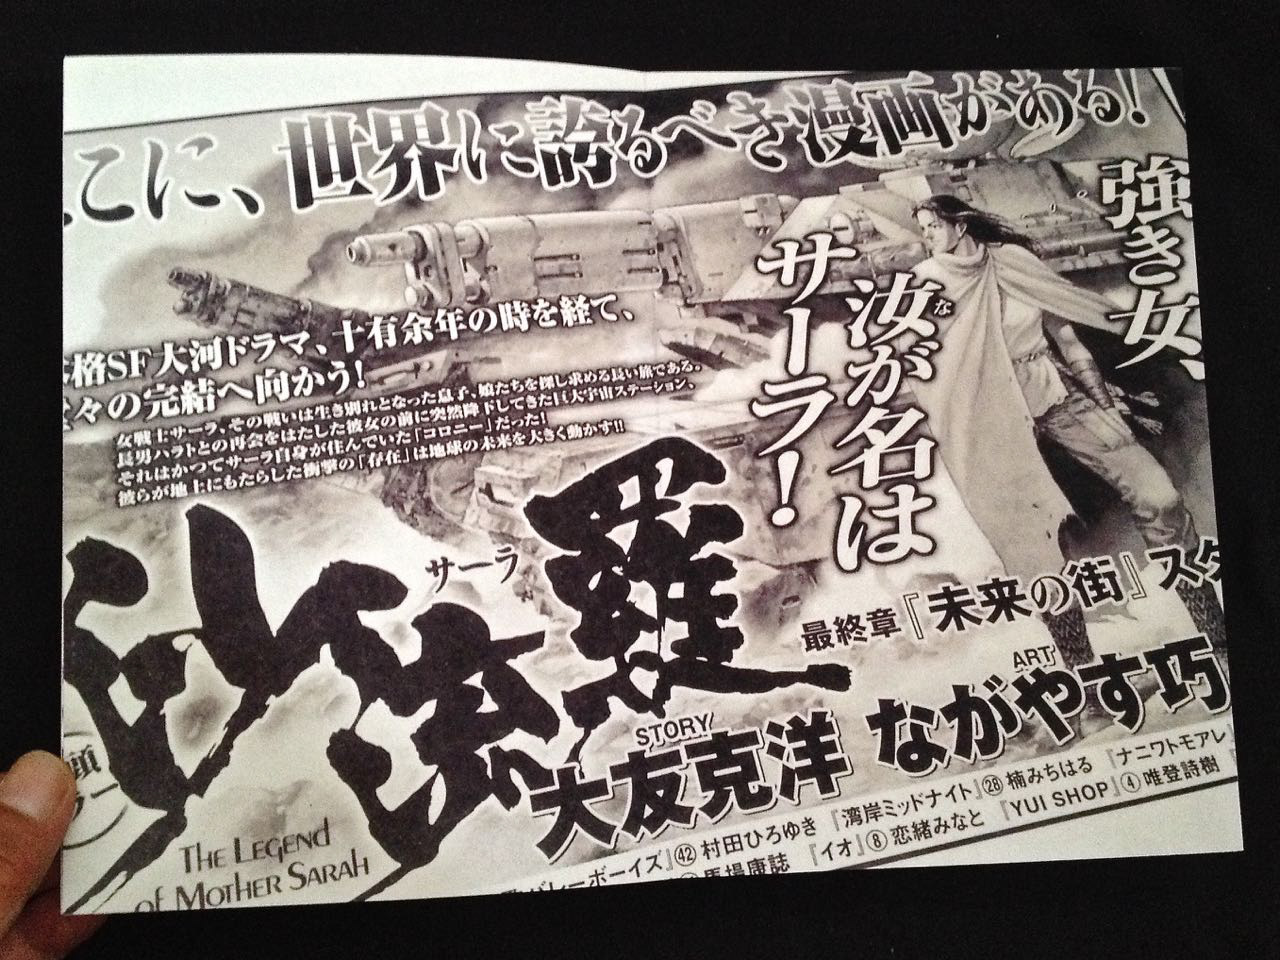 こに、世界に誇るべき漫画がある!
強き女、
汝が名は
な
サーラ!
格SF大河ドラマ、十有余年の時を経て、
々の完結へ向かう!
女戦士サーラ、その戦いは生き別れとなった息子、娘たちを探し求める長い旅である。
長男ハラトとの再会をはたした彼女の前に突然降下してきた巨大宇宙ステーション、
それはかつてサーラ自身が住んでいた「コロニー」だった!
彼らが地上にもたらした衝撃の「存在」は地球の未来を大きく動かす!!
サーラ
沙流羅
THE LEGENd
of MOTHER SARAH
最終章『未来の街』スタ
STORY
大友克洋
ART
ながやす巧
バレーボーイズ』㊷村田ひろゆき『湾岸ミッドナイト』㉘楠みちはる『ナニワトモアレ
馬場康誌『イオ』⑧恋緒みなと『YUI SHOP』④唯登詩樹